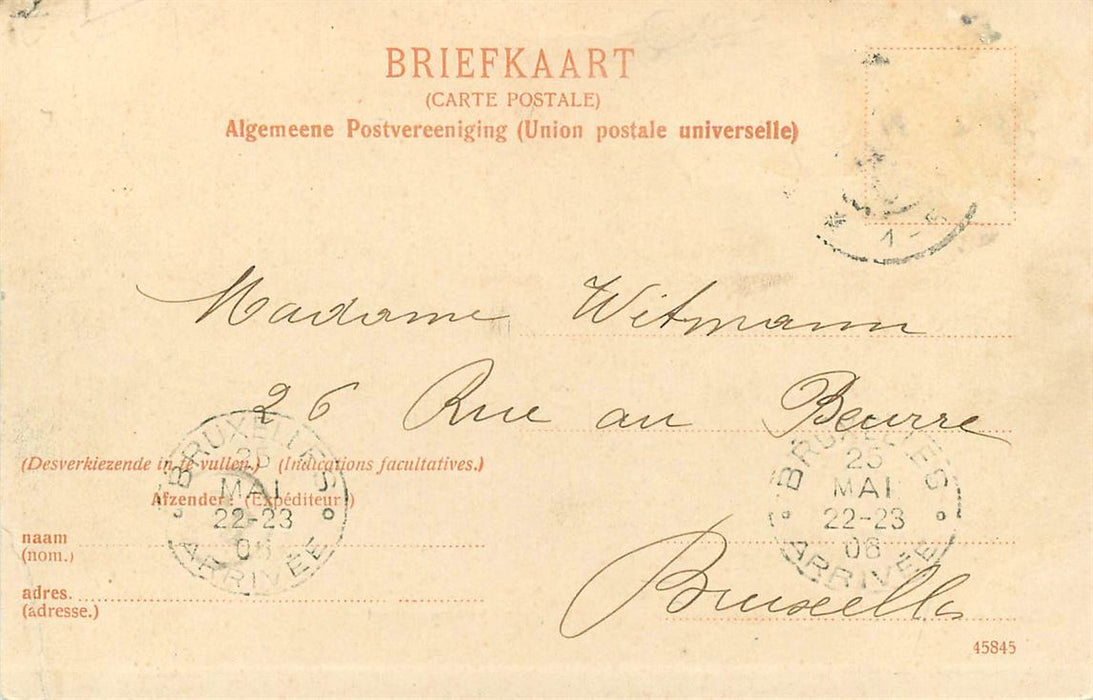 BRIEFKAART
(CARTE POSTALE)
Algemeene Postvereeniging (Union postale universelle)
1-
Madame Witmann
26 Rue au Beurre
Bruxelles
(Desverkiezende in te vullen.) (Indications facultatives.)
Afzender: (Expéditeur:)
naam
(nom.)
adres.
(adresse.)
BRUXELLES
25
MAI
22-23
06
ARRIVÉE
BRUXELLES
25
MAI
22-23
06
ARRIVÉE
45845